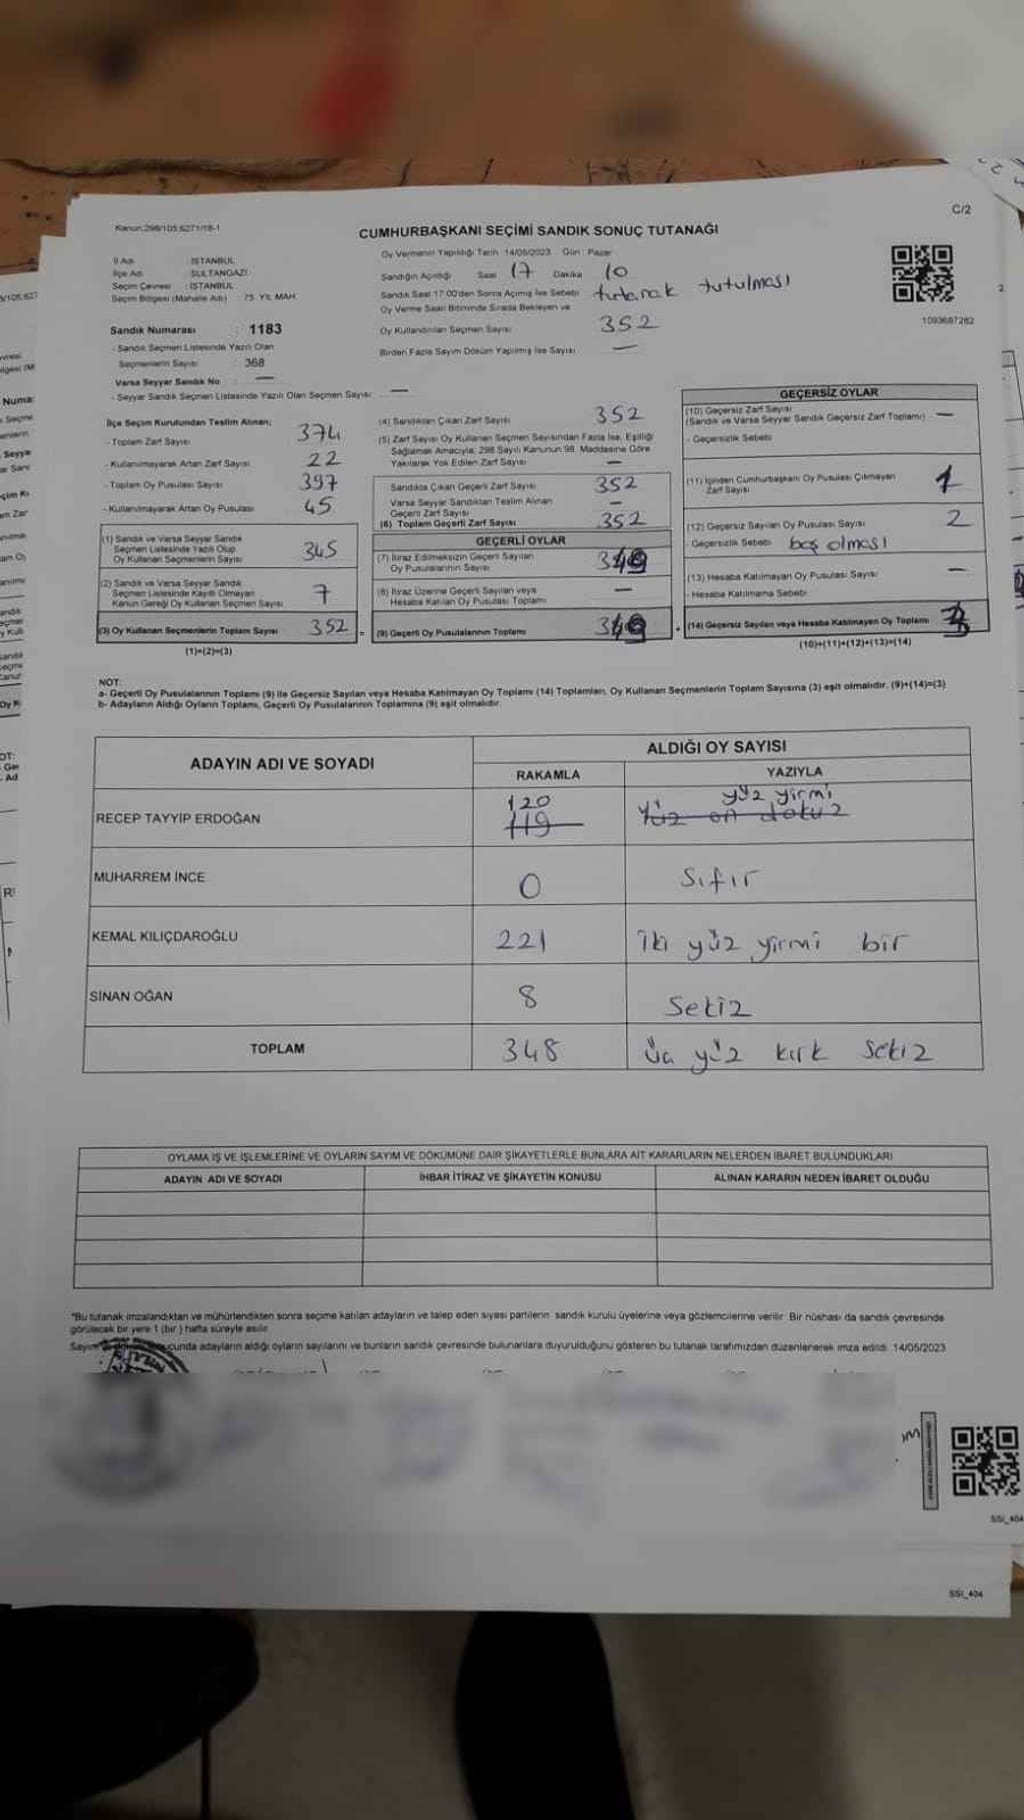 C/2
Kanun:298/105;6271/18-1
CUMHURBAŞKANI SEÇİMİ SANDIK SONUÇ TUTANAĞI
İl Adı : İSTANBUL
İlçe Adı : SULTANGAZİ
Seçim Çevresi : İSTANBUL
Seçim Bölgesi (Mahalle Adı) : 75. YIL MAH.
Sandık Numarası : 1183
- Sandık Seçmen Listesinde Yazılı Olan
Seçmenlerin Sayısı : 368
Varsa Seyyar Sandık No : —
- Seyyar Sandık Seçmen Listesinde Yazılı Olan Seçmen Sayısı: —
Oy Vermenin Yapıldığı Tarih : 14/05/2023 Gün : Pazar
Sandığın Açıldığı Saat 17 Dakika 10
Sandık Saat 17:00'den Sonra Açılmış İse Sebebi tutanak tutulması
Oy Verme Saati Bitiminde Sırada Bekleyen ve
Oy Kullandırılan Seçmen Sayısı 352
Birden Fazla Sayım Döküm Yapılmış İse Sayısı —
1093687282
İlçe Seçim Kurulundan Teslim Alınan;
- Toplam Zarf Sayısı 374
- Kullanılmayarak Artan Zarf Sayısı 22
- Toplam Oy Pusulası Sayısı 397
- Kullanılmayarak Artan Oy Pusulası 45
(1) Sandık ve Varsa Seyyar Sandık
Seçmen Listesinde Yazılı Olup
Oy Kullanan Seçmenlerin Sayısı 345
(2) Sandık ve Varsa Seyyar Sandık
Seçmen Listesinde Kayıtlı Olmayan
Kanun Gereği Oy Kullanan Seçmen Sayısı 7
(3) Oy Kullanan Seçmenlerin Toplam Sayısı 352 =
(1)+(2)=(3)
(4) Sandıktan Çıkan Zarf Sayısı 352
(5) Zarf Sayısı Oy Kullanan Seçmen Sayısından Fazla İse, Eşitliği
Sağlamak Amacıyla; 298 Sayılı Kanunun 98. Maddesine Göre
Yakılarak Yok Edilen Zarf Sayısı —
Sandıkta Çıkan Geçerli Zarf Sayısı 352
Varsa Seyyar Sandıktan Teslim Alınan
Geçerli Zarf Sayısı —
(6) Toplam Geçerli Zarf Sayısı 352
GEÇERLİ OYLAR
(7) İtiraz Edilmeksizin Geçerli Sayılan
Oy Pusulalarının Sayısı
(8) İtiraz Üzerine Geçerli Sayılan veya
Hesaba Katılan Oy Pusulası Toplamı —
(9) Geçerli Oy Pusulalarının Toplamı +
GEÇERSİZ OYLAR
(10) Geçersiz Zarf Sayısı
(Sandık ve Varsa Seyyar Sandık Geçersiz Zarf Toplamı) —
- Geçersizlik Sebebi
(11) İçinden Cumhurbaşkanı Oy Pusulası Çıkmayan
Zarf Sayısı 1
(12) Geçersiz Sayılan Oy Pusulası Sayısı 2
- Geçersizlik Sebebi boş olması
(13) Hesaba Katılmayan Oy Pusulası Sayısı —
- Hesaba Katılmama Sebebi
(14) Geçersiz Sayılan veya Hesaba Katılmayan Oy Toplamı
(10)+(11)+(12)+(13)=(14)
NOT:
a- Geçerli Oy Pusulalarının Toplamı (9) ile Geçersiz Sayılan veya Hesaba Katılmayan Oy Toplamı (14) Toplamları, Oy Kullanan Seçmenlerin Toplam Sayısına (3) eşit olmalıdır. (9)+(14)=(3)
b- Adayların Aldığı Oyların Toplamı, Geçerli Oy Pusulalarının Toplamına (9) eşit olmalıdır.
ADAYIN ADI VE SOYADI
ALDIĞI OY SAYISI
RAKAMLA YAZIYLA
RECEP TAYYİP ERDOĞAN 120 yüz yirmi
119 yüz on dokuz
MUHARREM İNCE 0 Sıfır
KEMAL KILIÇDAROĞLU 221 iki yüz yirmi bir
SİNAN OĞAN 8 Sekiz
TOPLAM 348 üç yüz kırk sekiz
OYLAMA İŞ VE İŞLEMLERİNE VE OYLARIN SAYIM VE DÖKÜMÜNE DAİR ŞİKAYETLERLE BUNLARA AİT KARARLARIN NELERDEN İBARET BULUNDUKLARI
ADAYIN ADI VE SOYADI İHBAR İTİRAZ VE ŞİKAYETİN KONUSU ALINAN KARARIN NEDEN İBARET OLDUĞU
*Bu tutanak imzalandıktan ve mühürlendikten sonra seçime katılan adayların ve talep eden siyasi partilerin sandık kurulu üyelerine veya gözlemcilerine verilir. Bir nüshası da sandık çevresinde
görülecek bir yere 1 (bir) hafta süreyle asılır.
Sayım ucunda adayların aldığı oyların sayılarını ve bunların sandık çevresinde bulunanlara duyurulduğunu gösteren bu tutanak tarafımızdan düzenlenerek imza edildi. 14/05/2023
SSİ_404
SSİ_404